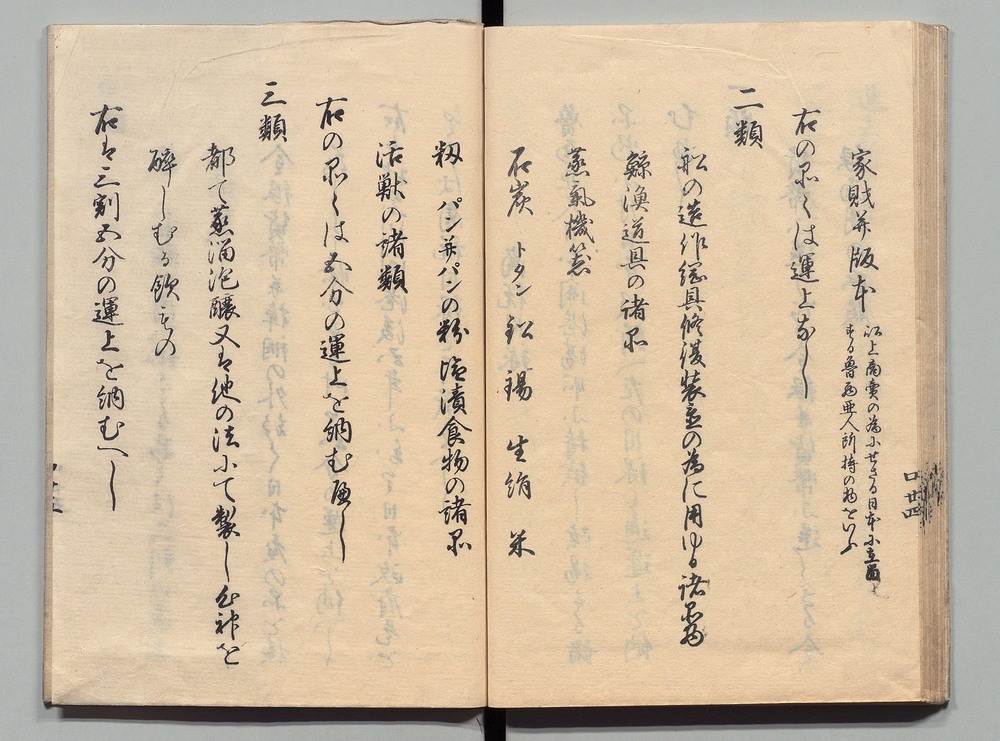 家財并版本 以上商賣の為にせさる日本に立留
まる魯西亜人所持の物をいふ
右の品々は運上なし
二類
船の造作綱具修復装並の為に用ゆる諸品
鯨漁道具の諸品
蒸氣機器
石炭 トタン 鉛 錫 生絹 米
籾 パン并パンの粉 塩漬食物の諸品
活獣の諸類
右の品々は五分の運上を納むへし
三類
都て蒸溜泡醸又は他の法にて製し心神を
酔しむる飲もの
右は三割五分の運上を納むへし